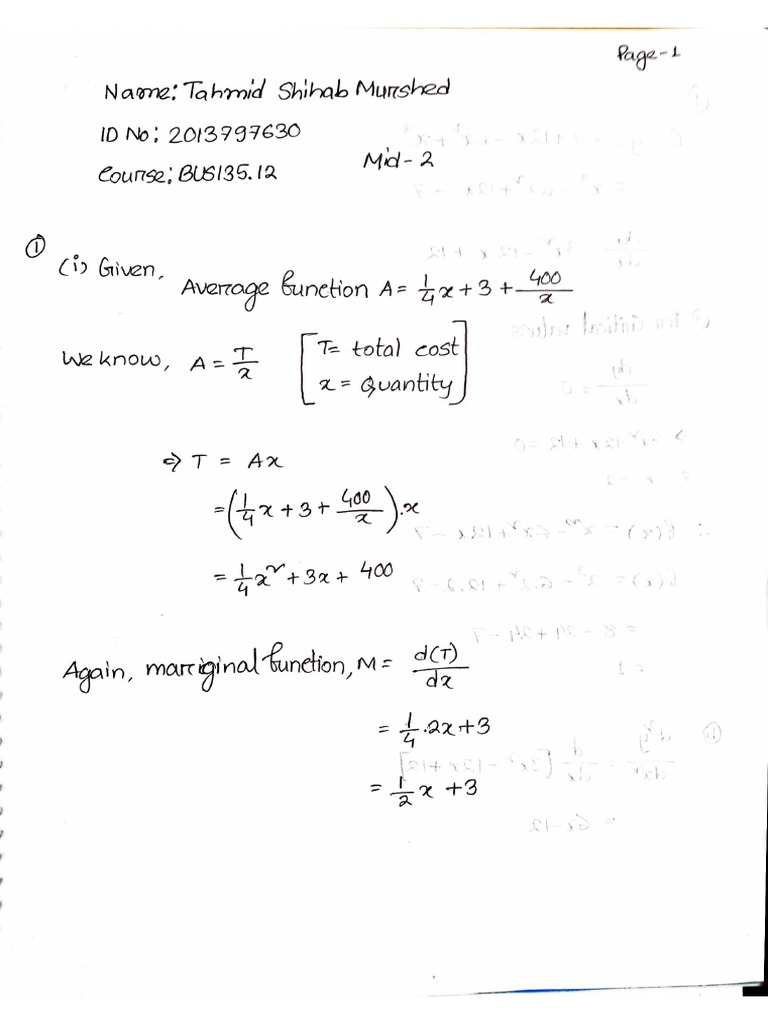 Page-1
Name: Tahmid Shihab Murshed
ID No: 2013797630
Course: BUS135.12
Mid-2
①
(i) Given, Average function A = 1/4 x + 3 + 400/x
We know, A = T/x [T = total cost
x = Quantity]
⇒ T = Ax
= (1/4 x + 3 + 400/x).x
= 1/4 x² + 3x + 400
Again, marginal function, M = d(T)/dx
= 1/4 .2x + 3
= 1/2 x + 3